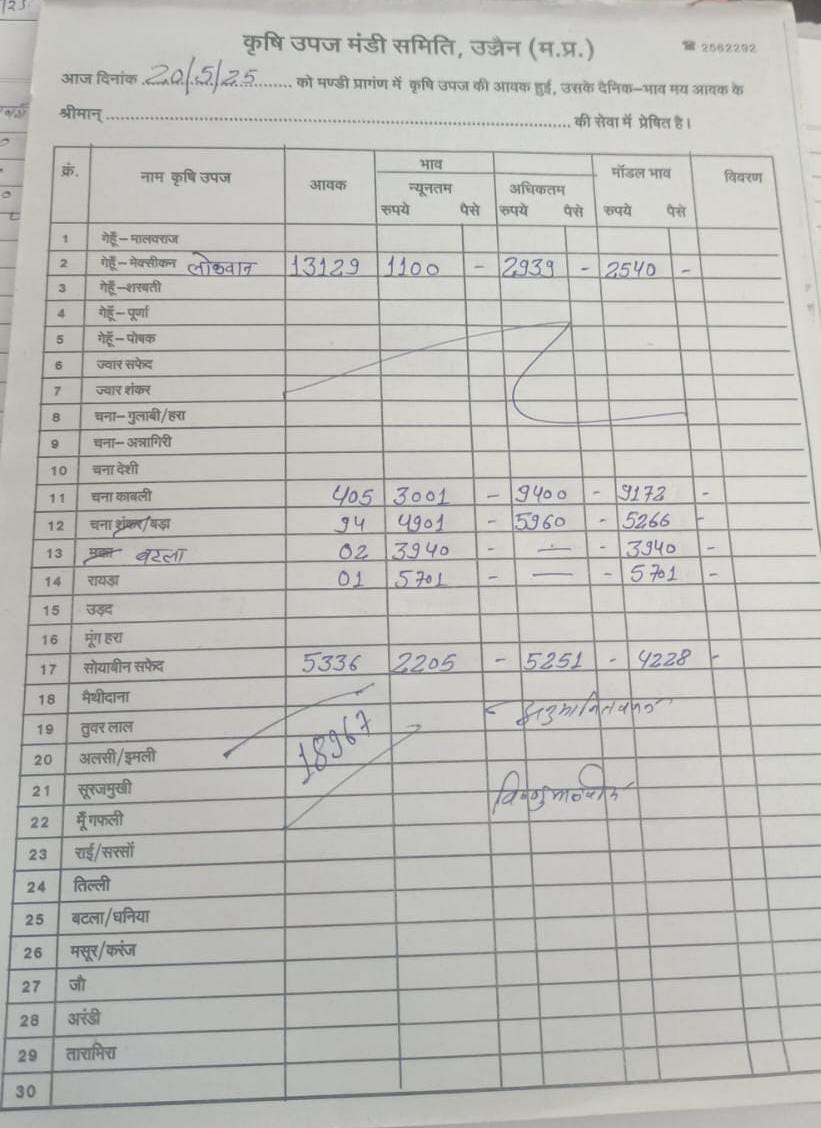 कृषि उपज मंडी समिति, उज्जैन (म.प्र.) ☎ 2562292
आज दिनांक 20/5/25 को मण्डी प्रागंण में कृषि उपज की आवक हुई, उसके दैनिक-भाव मय आवक के
श्रीमान् की सेवा में प्रेषित है।
क्रं. नाम कृषि उपज आवक भाव मॉडल भाव विवरण
न्यूनतम अधिकतम
रुपये पैसे रुपये पैसे रुपये पैसे
1 गेहूँ-मालवराज
2 गेहूँ-मेक्सीकन लोकवान 13129 1100 - 2939 - 2540 -
3 गेहूँ-शरबती
4 गेहूँ-पूर्णा
5 गेहूँ-पोषक
6 ज्वार सफेद
7 ज्वार शंकर
8 चना-गुलाबी/हरा
9 चना-अन्नागिरी
10 चना देशी
11 चना काबली 405 3001 - 9400 - 9172 -
12 चना शंकर/बड़ा 94 4901 - 5960 - 5266 -
13 मक्का बटला 02 3940 - — - 3940 -
14 रायड़ा 01 5701 - — - 5701 -
15 उड़द
16 मूंग हरा
17 सोयाबीन सफेद 5336 2205 - 5251 - 4228 -
18 मैथीदाना
19 तुवर लाल
18967
20 अलसी/इमली
21 सूरजमुखी
22 मूँगफली
23 राई/सरसों
24 तिल्ली
25 बटला/धनिया
26 मसूर/करंज
27 जौ
28 अरंडी
29 तारामिरा
30